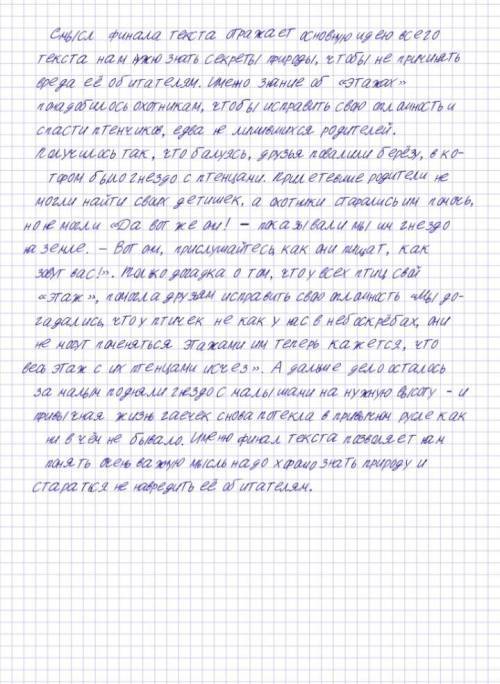 Смысл финала текста отражает основную идею всего
текста нам нужно знать секреты природы, чтобы не причинять
вреда её обитателям. Именно знание об «этажах»
понадобилось охотникам, чтобы исправить свою оплошность и
спасти птенчиков, едва не лишившихся родителей.
Получилось так, что балуясь, друзья повалили берёзу, в ко-
тором было гнездо с птенцами. Прилетевшие родители не
могли найти своих детишек, а охотники старались им помочь,
но не могли «Да вот же они! – показывали мы им гнездо
на земле. – Вот они, прислушайтесь, как они пищат, как
зовут вас!». Только догадка о том, что у всех птиц свой
«этаж», помогла друзьям исправить свою оплошность «Мы до-
гадались, что у птичек не как у нас в небоскрёбах, они
не могут поменяться этажами им теперь кажется, что
весь этаж с их птенцами исчез». А дальше дело осталось
за малым подняли гнездо с малышами на нужную высоту – и
привычная жизнь гаечек снова потекла в привычном русле как
ни в чём не бывало. Именно финал текста позволяет нам
понять очень важную мысль надо хорошо знать природу и
стараться не навредить её обитателям.